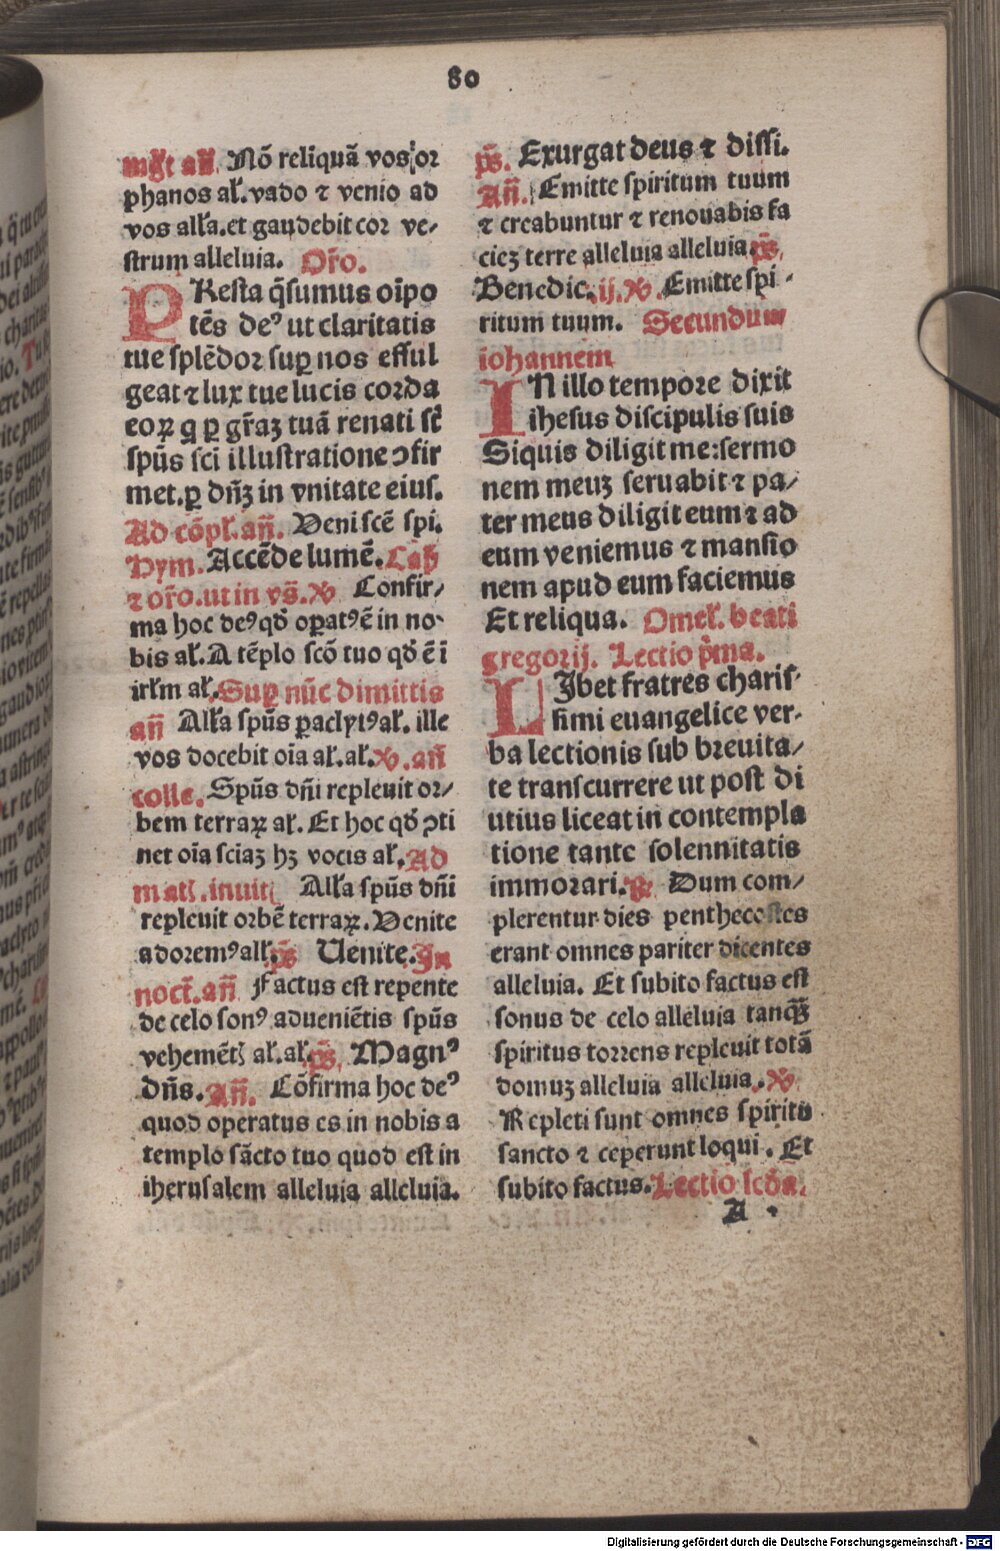 80
mgt̄ an̄. Nō reliquā vos or
phanos al̄. vado ⁊ venio ad
vos all̄a. et gaudebit cor ve⸗
strum alleluia. Or̄o.
PResta q̄sumus oīpo
tēs deꝰ ut claritatis
tue splēdor suꝑ nos efful
geat ⁊ lux tue lucis corda
eoꝝ q ꝑ gr̄aꝫ tuā renati sc̄
spūs sci illustratione ↄfir
met. ꝑ dn̄ꝫ in vnitate eius.
Ad cōpl̄. an̄. Veni scē spi.
Hym. Accēde lumē. Cap̄
⁊ or̄o. ut in vs̄. ℣ Confir⸗
ma hoc deꝰ qd̄ oꝑatꝰ ē in no⸗
bis al̄. A tēplo scō tuo qd̄ ē ī
irl̄m al̄. Suꝑ nūc dimittis
an̄ All̄a spūs ꝑaclytꝰ al̄. ille
vos docebit oīa al̄. al̄. ℣. an̄
colle. Spūs dn̄i repleuit or⸗
bem terraꝝ al̄. Et hoc qd̄ ↄti
net oīa sciaꝫ hꝫ vocis al̄. Ad
mat̄. inuit̄ All̄a spūs dn̄i
repleuit orbē terraꝝ. Venite
adoremꝰ all̄. ps̄ Uenite. In
noct̄. an̄ Factus est repente
de celo sonꝰ adueniētis spūs
vehemēt̄ al̄. al̄. ps̄. Magnꝰ
dn̄s. An̄. Cōfirma hoc deꝰ
quod operatus es in nobis a
templo sācto tuo quod est in
iherusalem alleluia alleluia.
ps̄. Exurgat deus ⁊ dissi.
An̄. Emitte spiritum tuum
⁊ creabuntur ⁊ renouabis fa
cieꝫ terre alleluia alleluia. ps̄.
Benedic. ij. ℣. Emitte spi⸗
ritum tuum. Secundum
iohannem
IN illo tempore dixit
ihesus discipulis suis
Siquis diligit me: sermo
nem meuꝫ seruabit ⁊ pa⸗
ter meus diligit eum ⁊ ad
eum veniemus ⁊ mansio
nem apud eum faciemus
Et reliqua. Omel̄. beati
gregorij. Lectio p̄ma.
LIbet fratres charis⸗
simi euangelice ver⸗
ba lectionis sub breuita⸗
te transcurrere ut post di
utius liceat in contempla
tione tante solennitatis
immorari. ℟ Dum com⸗
plerentur dies penthecostes
erant omnes pariter dicentes
alleluia. Et subito factus est
sonus de celo alleluia tanqꝫ
spiritus torrens repleuit totā
domuꝫ alleluia alleluia. ℣
Repleti sunt omnes spiritu
sancto ⁊ ceperunt loqui. Et
subito factus. Lectio scd̄a.
A
Digitalisierung gefördert durch die Deutsche Forschungsgemeinschaft - DFG